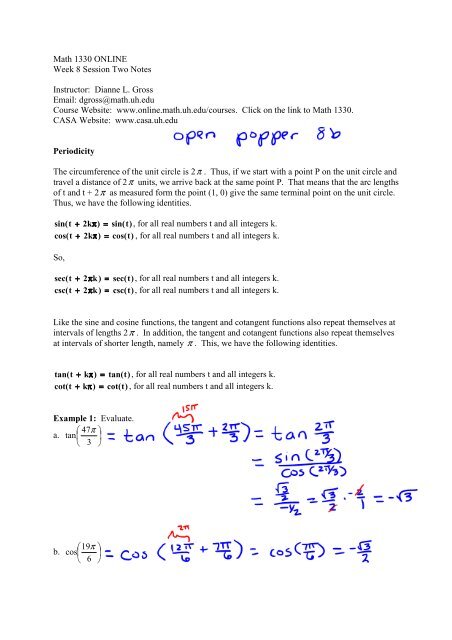 Math 1330 ONLINE
Week 8 Session Two Notes
Instructor: Dianne L. Gross
Email: dgross@math.uh.edu
Course Website: www.online.math.uh.edu/courses. Click on the link to Math 1330.
CASA Website: www.casa.uh.edu
open popper 8b
Periodicity
The circumference of the unit circle is 2π. Thus, if we start with a point P on the unit circle and
travel a distance of 2π units, we arrive back at the same point P. That means that the arc lengths
of t and t + 2π as measured form the point (1, 0) give the same terminal point on the unit circle.
Thus, we have the following identities.
sin(t + 2kπ) = sin(t), for all real numbers t and all integers k.
cos(t + 2kπ) = cos(t), for all real numbers t and all integers k.
So,
sec(t + 2πk) = sec(t), for all real numbers t and all integers k.
csc(t + 2πk) = csc(t), for all real numbers t and all integers k.
Like the sine and cosine functions, the tangent and cotangent functions also repeat themselves at
intervals of lengths 2π. In addition, the tangent and cotangent functions also repeat themselves
at intervals of shorter length, namely π. This, we have the following identities.
tan(t + kπ) = tan(t), for all real numbers t and all integers k.
cot(t + kπ) = cot(t), for all real numbers t and all integers k.
Example 1: Evaluate.
15π
a. tan(47π/3) = tan(45π/3 + 2π/3) = tan 2π/3
= sin(2π/3)/cos(2π/3)
= (√3/2)/(-1/2) = √3/2 · -2/1 = -√3
2π
b. cos(19π/6) = cos(12π/6 + 7π/6) = cos(7π/6) = -√3/2